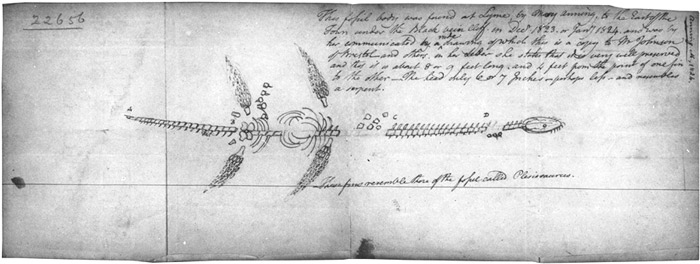 22656
This fossil body was found at Lyme, by Mary Anning, to the East of the
Town under the Black Ven Cliff. in Decr 1823. or Jany 1824. and was by
her communicated by a rude drawing of which this is a copy to Mr Johnson
of Bristol and others. in her letter she states this to be very well preserved
and that it is about 8 or 9 feet long, and 4 feet from the point of one fin
to the other — The head only 6 or 7 Inches — perhaps less — and resembles
a serpent.
These fins resemble those of the fossil called Plesiosaurus.